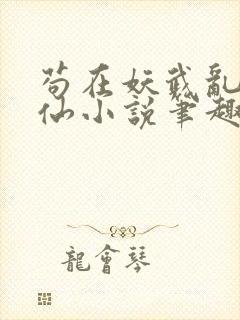 苟在妖武亂
仙小說筆趣
龍會琴